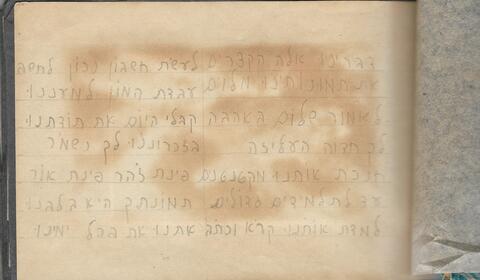 דברינו אלה הקצרים לעשת חשבון נכון לחשב
את תמונו וחינו חלום עבדת המון למעננו
לאמור שלום באהבה קבלי היום את תודתנו
לך חדוה העליזה בזכרוננו לך נשמר
חנכת אותנו מקטנטנים פינת זהר פינת אור
עד לתלמידים גדולים תמונתך היא בלבנו
למדת אותנו קרא וכתב אתנו את בכל ימינו